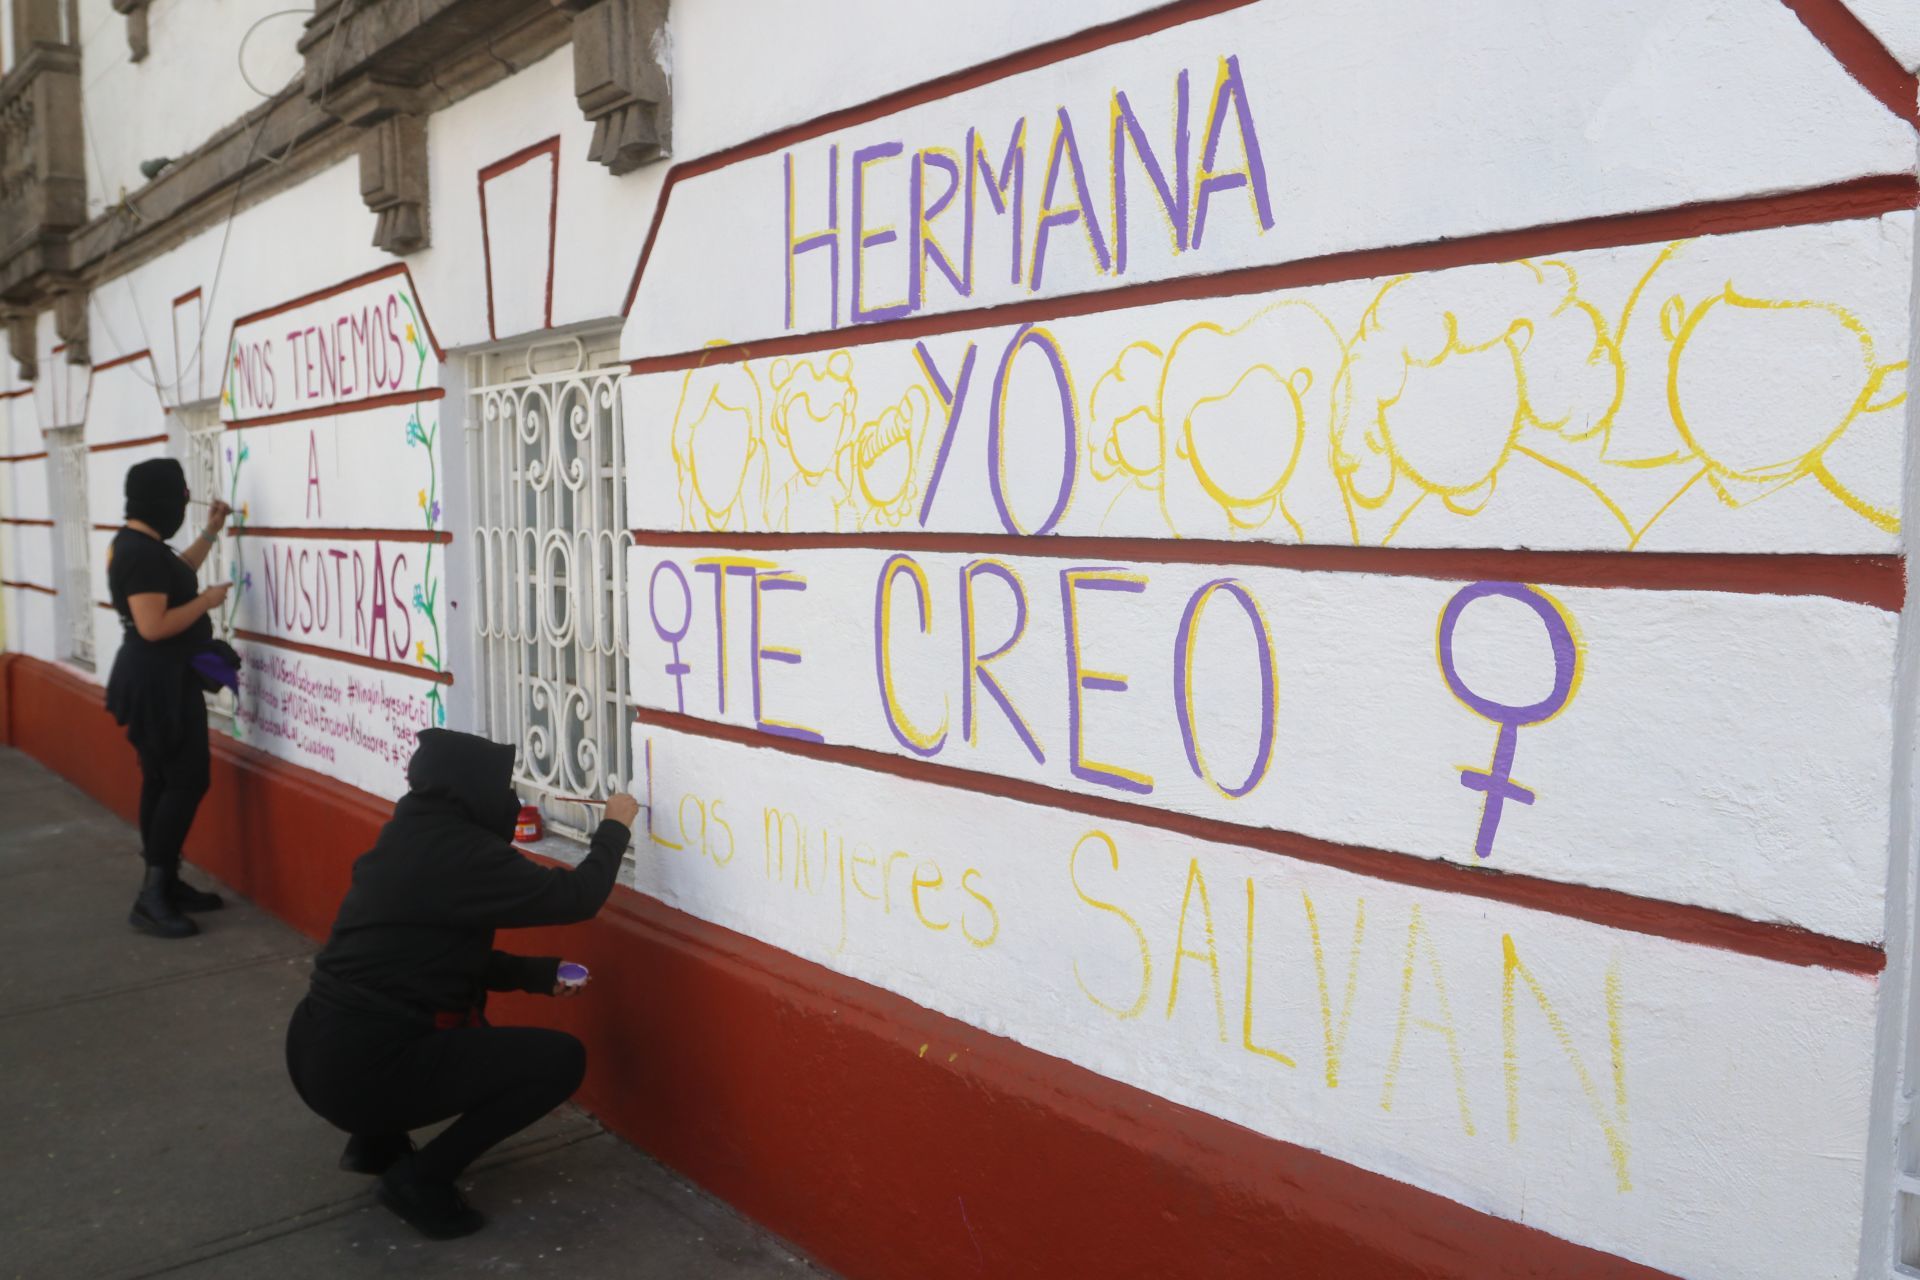 NOS TENEMOS
A
NOSOTRAS
NOSeráGobernador #NingúnAgresorEnEl
Poder
#MORENAEncubreVioladores
HERMANA
YO
TE CREO
Las mujeres SALVAN